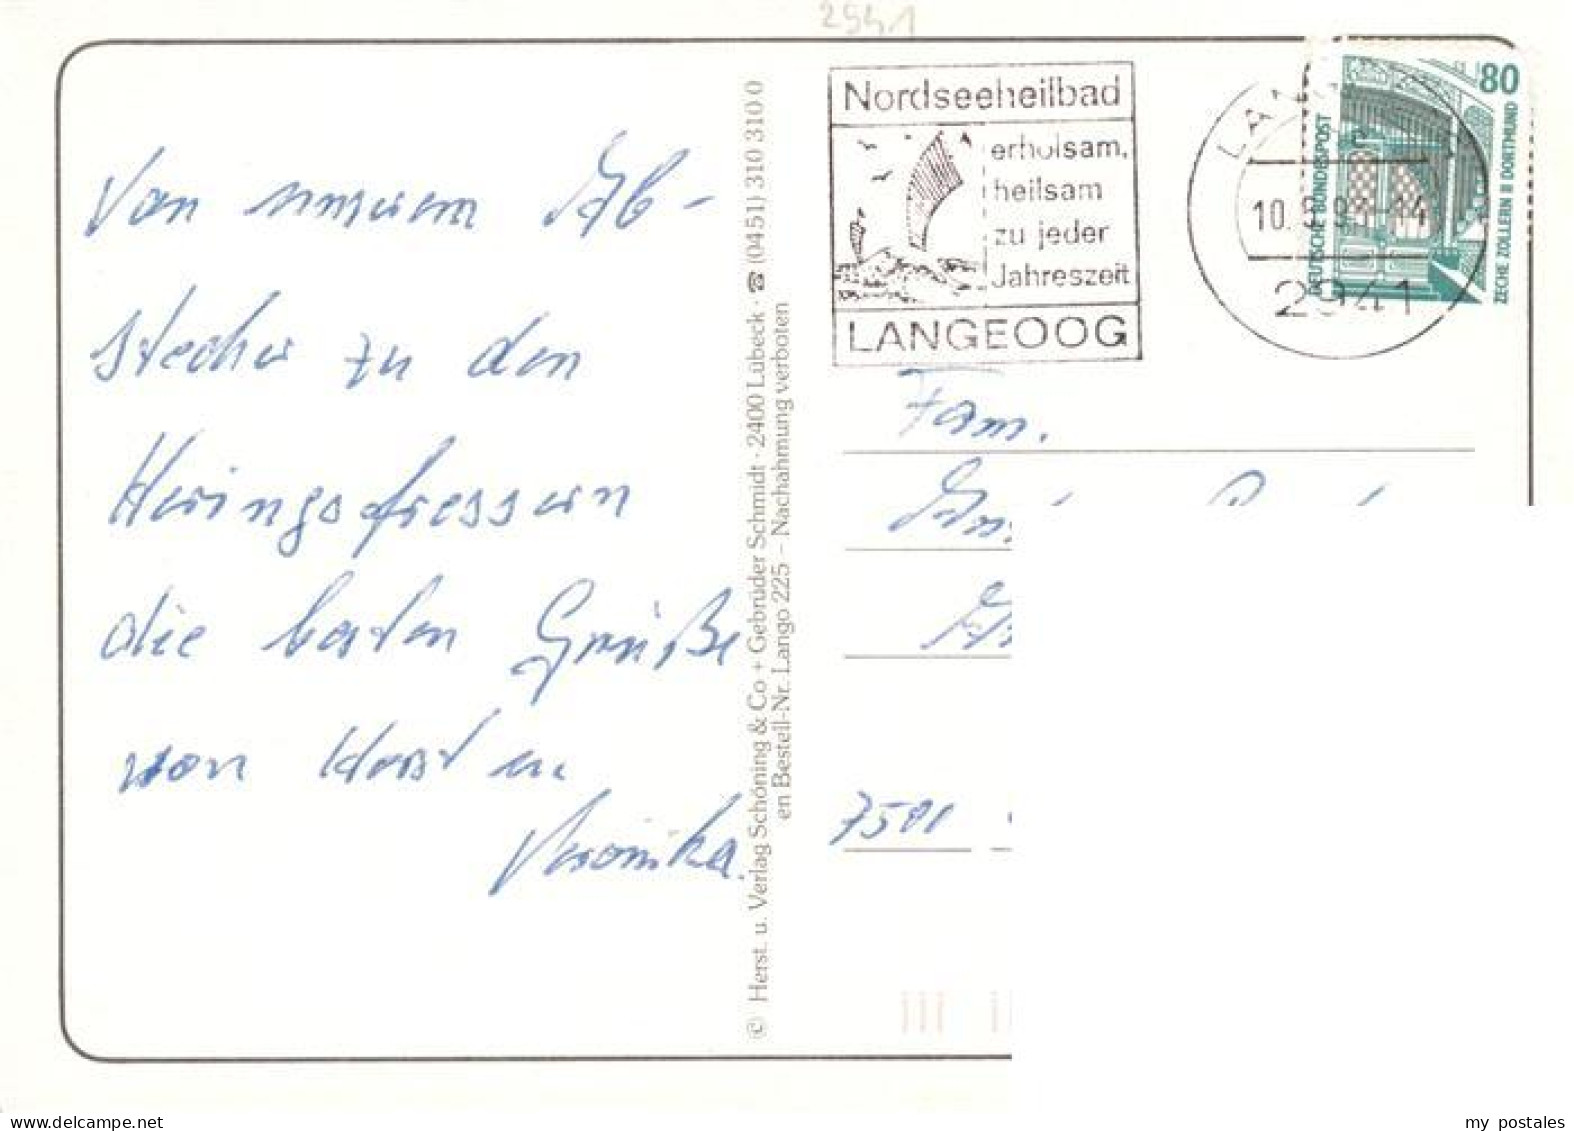 2941
Von unserem Ab-
stecher zu den
Heringsfressern
die besten Grüße
von Horst u.
Veronika.
© Herst. u. Verlag Schöning & Co + Gebrüder Schmidt · 2400 Lübeck · ☎ (0451) 310 310 0
en Bestell-Nr. Lango 225 – Nachahmung verboten
Nordseeheilbad
erholsam,
heilsam
zu jeder
Jahreszeit
LANGEOOG
10. 14
2941
80
DEUTSCHE BUNDESPOST
ZECHE ZOLLERN II DORTMUND
Fam.
my postales